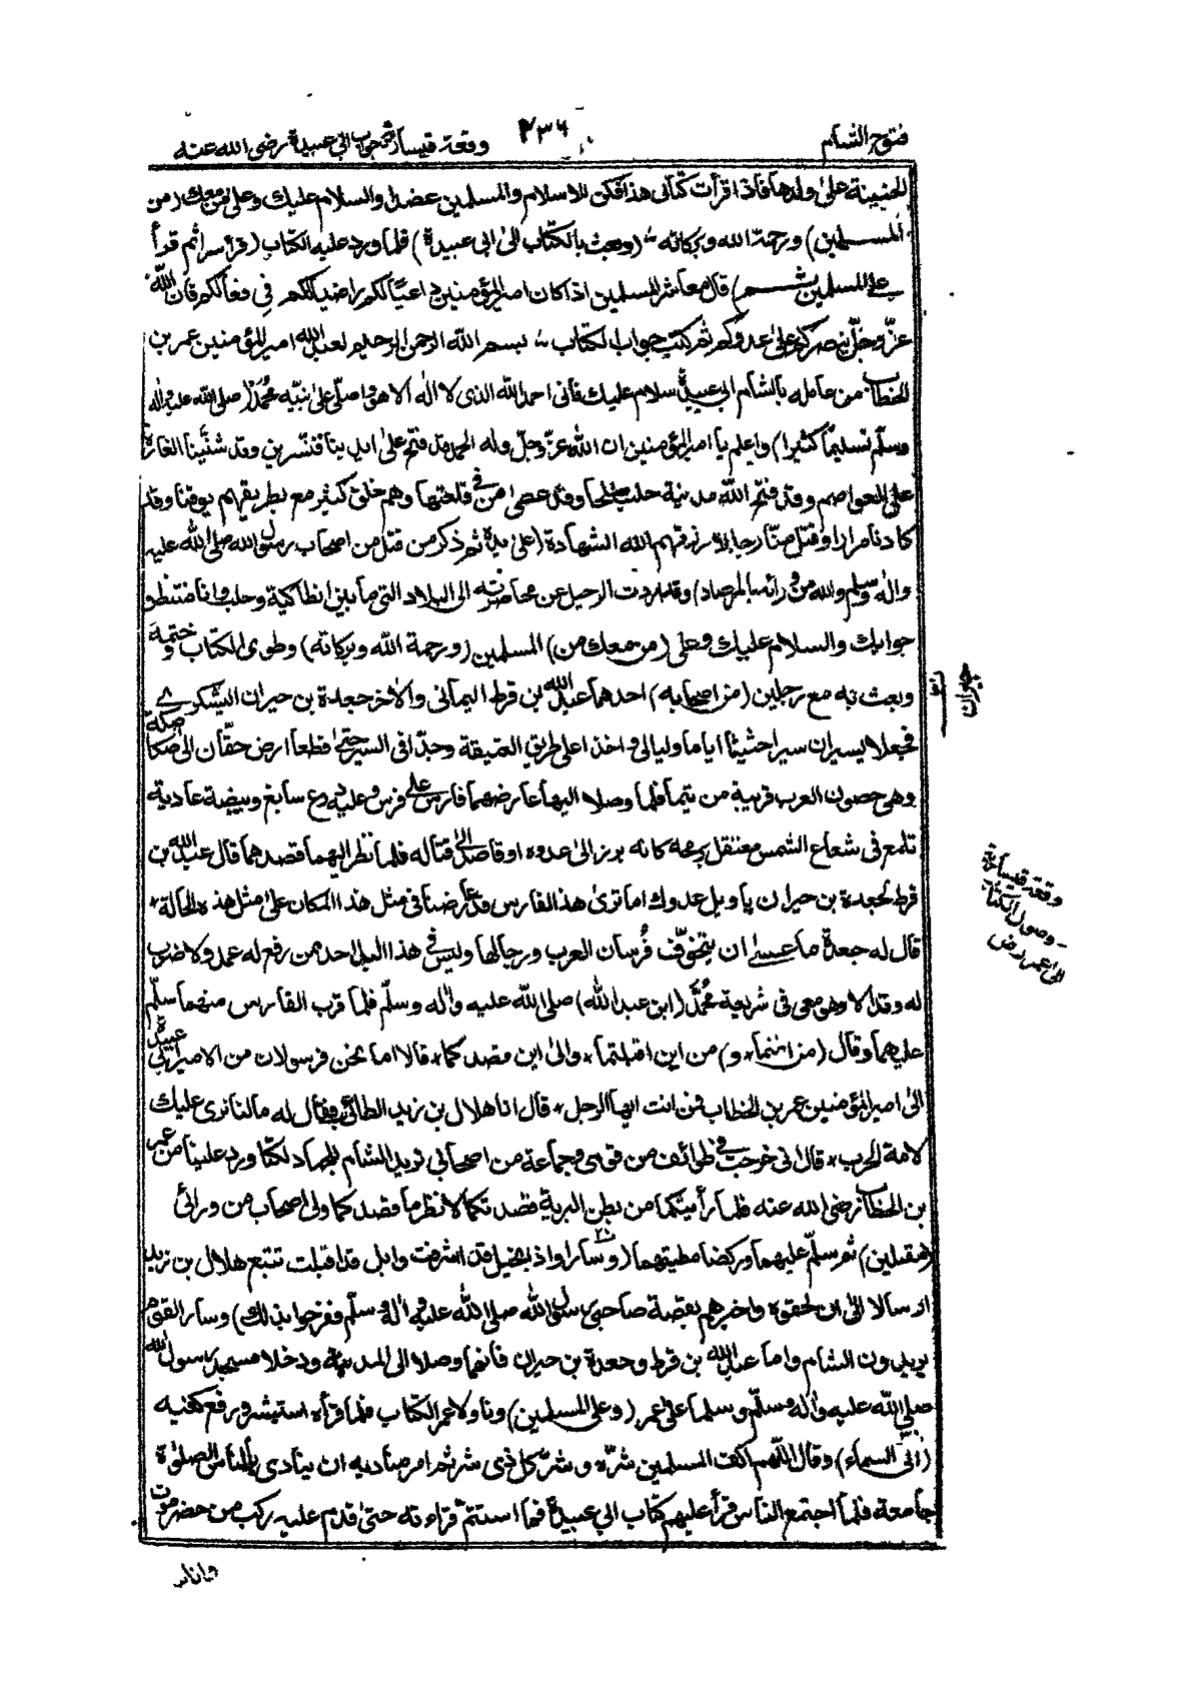 فتوح الشام ٢٣٦ وقعة قيسارية جواب ابى عبيدة رضى الله عنه
الحنينة على ولدها فاذا قرأت كتابى هذا فكن للاسلام والمسلمين عضدا والسلام عليك وعلى من معك (من
المسلمين) ورحمة الله وبركاته (وبعث بالكتاب الى ابى عبيدة) فلما ورد عليه الكتاب (قرأ سرا ثم قرأ
على المسلمين) قال معاشر المسلمين اذا كان امير المؤمنين داعيا لكم راضيا لكم فى فعالكم فان الله
عز وجل ينصركم على عدوكم ثم كتب جواب الكتاب بسم الله الرحمن الرحيم لعبد الله امير المؤمنين عمر بن
الخطاب من عامله بالشام ابى عبيدة سلام عليك فانى احمد الله الذى لا اله الا هو واصلى على نبيه محمد (صلى الله عليه واله
وسلم تسليما كثيرا) واعلم يا امير المؤمنين ان الله عز وجل وله الحمد قد فتح على ايدينا قنسرين وقد شننا الغارة
على العواصم وقد فتح الله مدينة حلب صلحا وقد عصا من فى قلعتها وهم خلق كثير مع بطريقهم يوقنا وقد
كادنا مرارا وقتل منا رجالا رزقهم الله الشهادة (على يديه ثم ذكر من قتل من اصحاب رسول الله صلى الله عليه
واله وسلم والله من ورائه بالمرصاد) وقد اردت الرحيل عن محاصرته الى البلاد التى ما بين انطاكية وحلب وانا منتظر
جوابك والسلام عليك وعلى (من معك من) المسلمين (ورحمة الله وبركاته) وطوى الكتاب وختمه
وبعث به مع رجلين (من اصحابه) احدهما عبد الله بن قرط اليمانى والاخر جعدة بن حيران اليشكرى
فجعلا يسيران سيرا حثيثا اياما وليالى واخذا على طريق العتيقة وجدا فى السير حتى قطعا ارض حقان الى صكاصكة
وهى حصون العرب قريبة من تيما فلما وصلا اليها عارضهما فارس على فرس وعليه درع سابغ وبيضة عادية
تلمع فى شعاع الشمس معتقل برمحه كانه برز الى عدوه او قاصد الى قتاله فلما نظر اليهما قصدهما قال عبد الله بن
قرط لجعدة بن حيران يا ويل عدوك اما ترى هذا الفارس قد عارضنا فى مثل هذا المكان على مثل هذه الحالة
قال له جعدة ما عسى ان يتخوف فرسان العرب ورجالها وليس فى هذا البلد احد من رفع له عمد ولا ضرب
له وتد الا وهو معى فى شريعة محمد (ابن عبد الله) صلى الله عليه واله وسلم فلما قرب الفارس منهما سلم
عليهما وقال (من انتما و) من اين اقبلتما والى اين مقصدكما قالا اما نحن فرسولان من الامير ابى عبيدة
الى امير المؤمنين عمر بن الخطاب فمن انت ايها الرجل قال انا هلال بن زيد الطائى فقال له مالنا نرى عليك
لامة الحرب قال انى خرجت فى طوائف من قومى وجماعة من اصحابى نريد الشام للجهاد لكتاب ورد علينا من عمر
بن الخطاب رضى الله عنه فلما رأيتكما من بطن البرية قصدتكما لانظر ما قصدكما ولى اصحاب من ورائى
(مقبلين) ثم سلم عليهما وركضا مطيتهما (وسارا واذ بخيل قد اشرفت وابل قد اقبلت تتبع هلال بن زيد
ارسالا الى ان لحقوه واخبرهم بقصة صاحبى رسول الله صلى الله عليه واله وسلم ففرحوا بذلك) وسار القوم
يريدون الشام واما عبد الله بن قرط وجعدة بن حيران فانهما وصلا الى المدينة ودخلا مسجد رسول الله
صلى الله عليه واله وسلم وسلما على عمر (وعلى المسلمين) وناولا عمر الكتاب فلما قرأه استبشر ورفع كفيه
(الى السماء) وقال اللهم اكف المسلمين شره وشر كل ذى شر ثم امر مناديه ان ينادى بالناس الصلوة
جامعة فلما اجتمع الناس قرأ عليهم كتاب ابى عبيدة فما استتم قراءته حتى قدم عليه ركب من حضرموت
جيران
وقعة قيسارية
وصول الكتاب
الى عمر رض